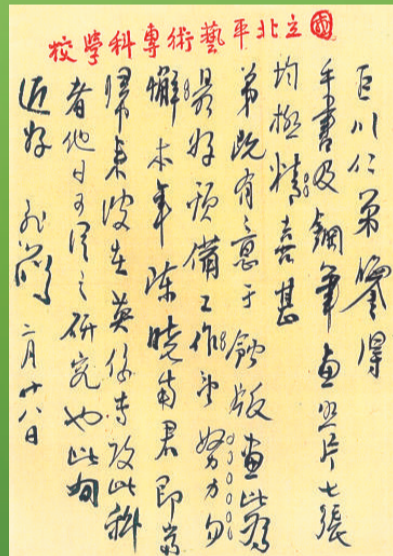 國立北平藝術專科學校
巨川仁弟鑒得
手書及鋼筆畫照片七張
均極精喜甚
弟既有意于蝕版畫此為
最好預備工作望努力勿
懈本年陳曉南君即當
歸來彼在英係專攻此科
者他日可得之研究也此詢
近好 悲鴻 二月廿八日